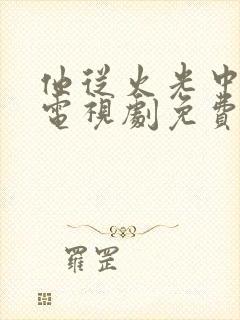 他從火光中
電視劇免費
羅罡